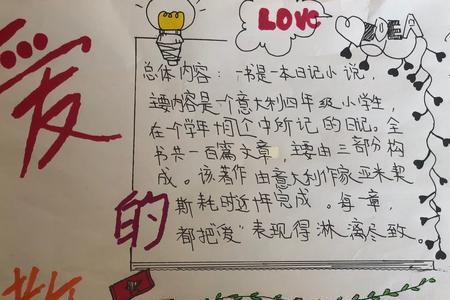 LOVE
IDEA
爱
的
总体内容：一书是一本日记小说，
主要内容是个意大利四年级小学生，
在一个学年十个月中所记的日记。全
书共一百篇文章，主要由三部分构
成。该著作由意大利作家亚米契
斯耗时近10年完成。每章，
都把“爱”表现得淋漓尽致。